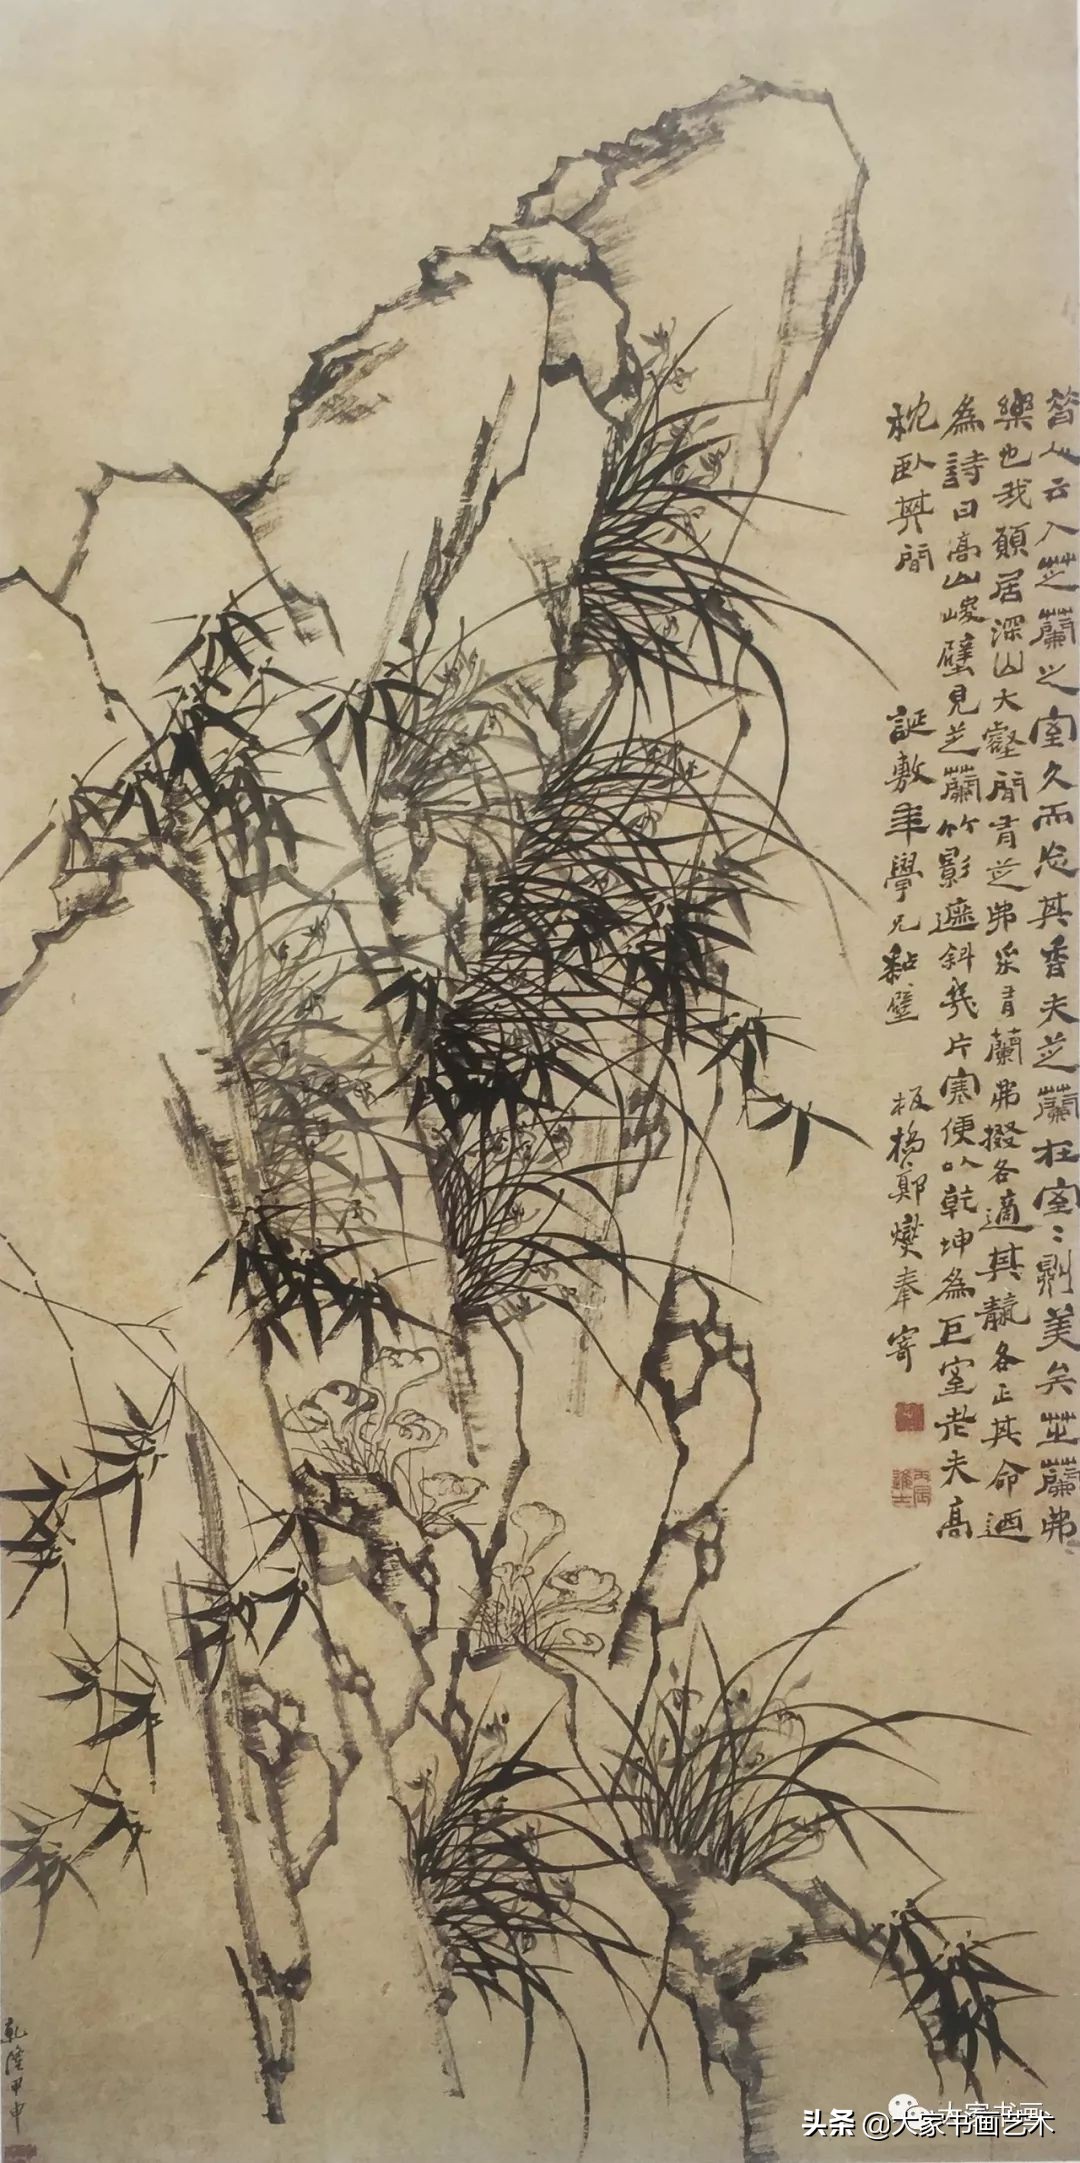 昔人云入芝蘭之室久而忘其香夫芝蘭在室室則美矣芝蘭弗
樂也我願居深山大壑間有芝弗采有蘭弗掇各適其䕻各正其命迺
為詩曰高山峻壁見芝蘭竹影遮斜幾片寒便以乾坤為巨室老夫高
枕臥其間
誕敷年學兄黏壁
板橋鄭燮奉寄
丙辰進士
乾隆甲申
大家书画
头条 @大家书画艺术